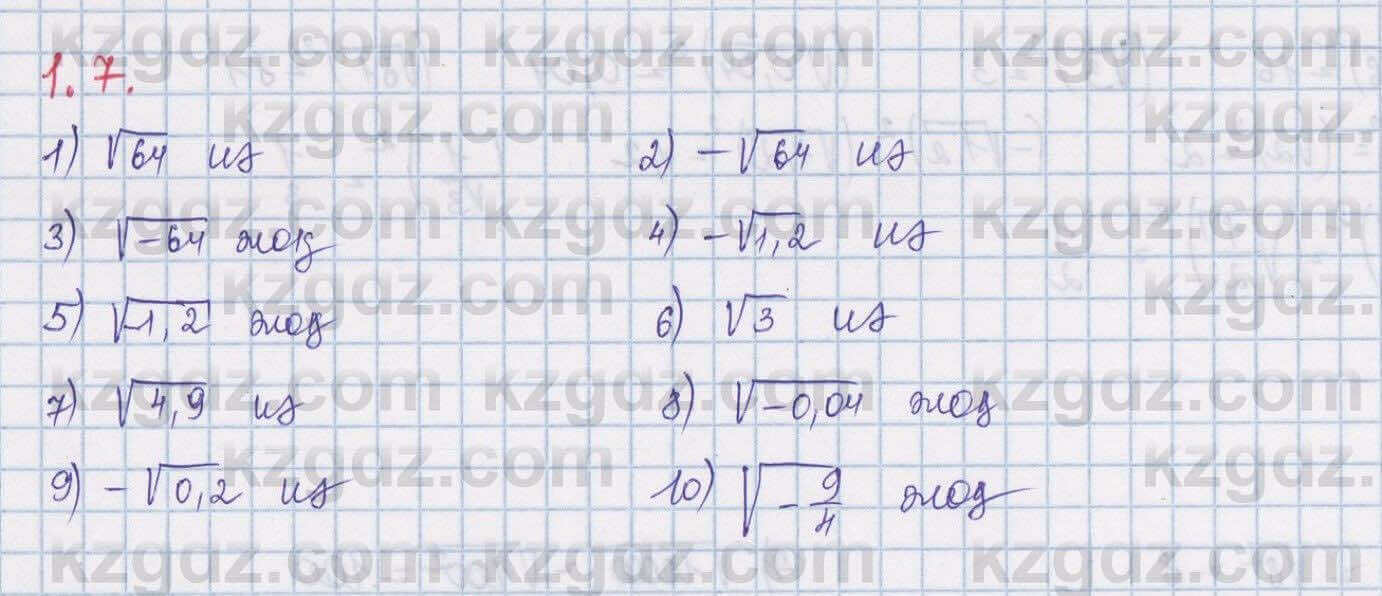 1.7.
1) √64 иә 2) -√64 иә
3) √-64 жоқ 4) -√1,2 иә
5) √-1,2 жоқ 6) √3 иә
7) √4,9 иә 8) √-0,04 жоқ
9) -√0,2 иә 10) √-9/4 жоқ
kzgdz.com